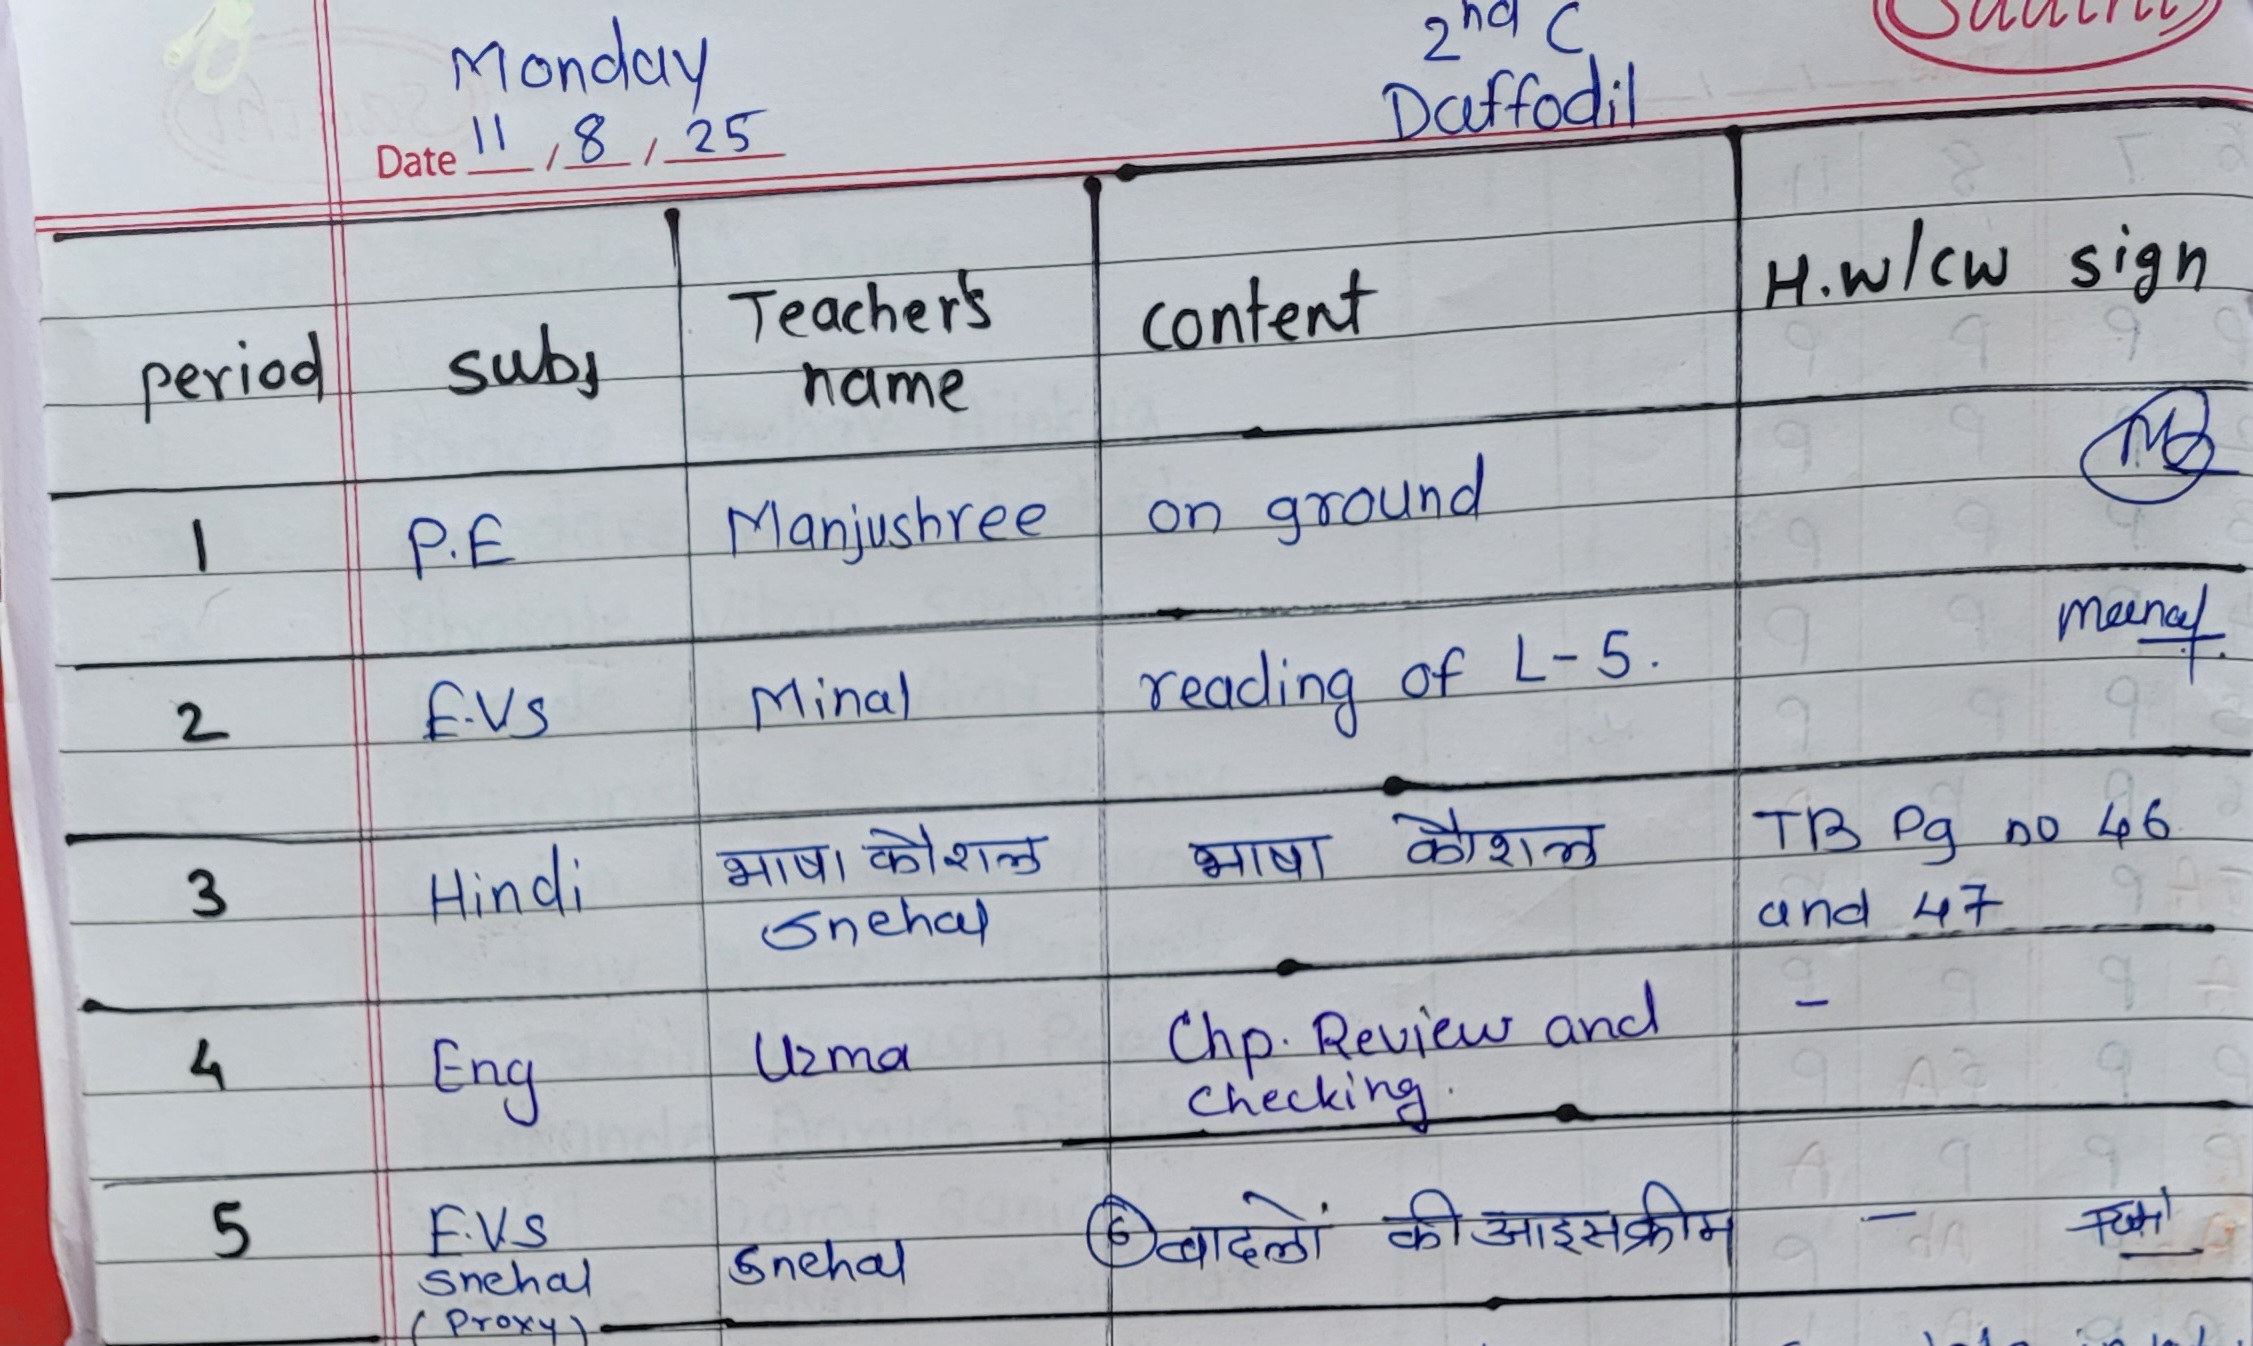 Monday
2nd C
Daffodil
Date 11 / 8 / 25
period subj Teacher's name content H.W/CW sign
1 P.E Manjushree on ground
2 E.VS Minal reading of L-5. Meenal
3 Hindi भाषा कौशल भाषा कौशल TB Pg no 46
Snehal and 47
4 Eng Uzma Chp. Review and -
checking.
5 E.VS Snehal 6 बादलों की आइसक्रीम -
Snehal
(Proxy)